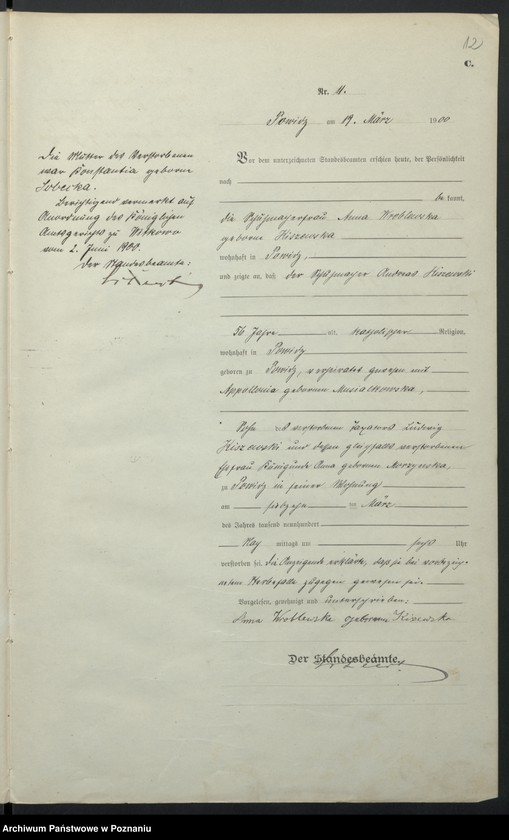 12
C.
Nr. 11.
Powidz am 19. März 1900
Vor dem unterzeichneten Standesbeamten erschien heute, der Persönlichkeit
nach
be kannt,
die Schuhmacherfrau Anna Wroblewska
geborne Kiszewska
wohnhaft in Powidz,
und zeigte an, daß der Schuhmacher Andreas Kiszewski
56 Jahre alt, katholischer Religion,
wohnhaft in Powidz
geboren zu Powidz, verheiratet gewesen mit
Appollonia geborenen Musialkowska,
Sohn des verstorbenen Ludwig
Kiszewski und dessen gleichfalls verstorbenen
Ehefrau Künigunde Anna geborenen
zu Powidz in seiner Wohnung
am siebzehn ten März
des Jahres tausend neunhundert
Nach mittags um sechs Uhr
verstorben sei, die Anzeigende erklärte, daß sie bei vorbezeich-
netem Sterbefalle zugegen gewesen sei.
Vorgelesen, genehmigt und unterschrieben:
Anna Wroblewska geborene
Der Standesbeamte.
Die Mutter des Verstorbenen
war Konstantia geborne
Sobecka.
Berichtigend vermerkt auf
Anordnung des Königlichen
Amtsgerichts zu Witkowo
vom 2. Juni 1900.
Der Standesbeamte:
Archiwum Państwowe w Poznaniu